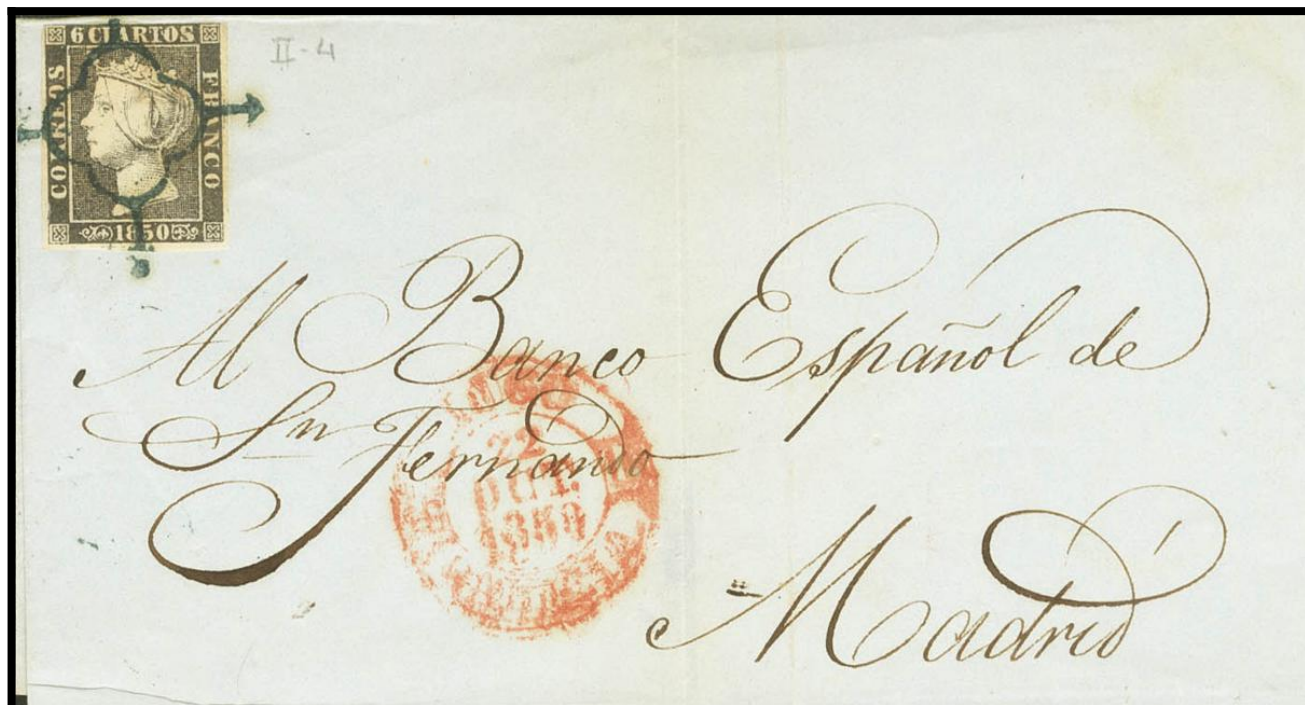 6 CUARTOS
II-4
CORREOS
FRANCO
1850
Al Banco Español de
Sn Fernando
22
OCT.
1850
Madrid